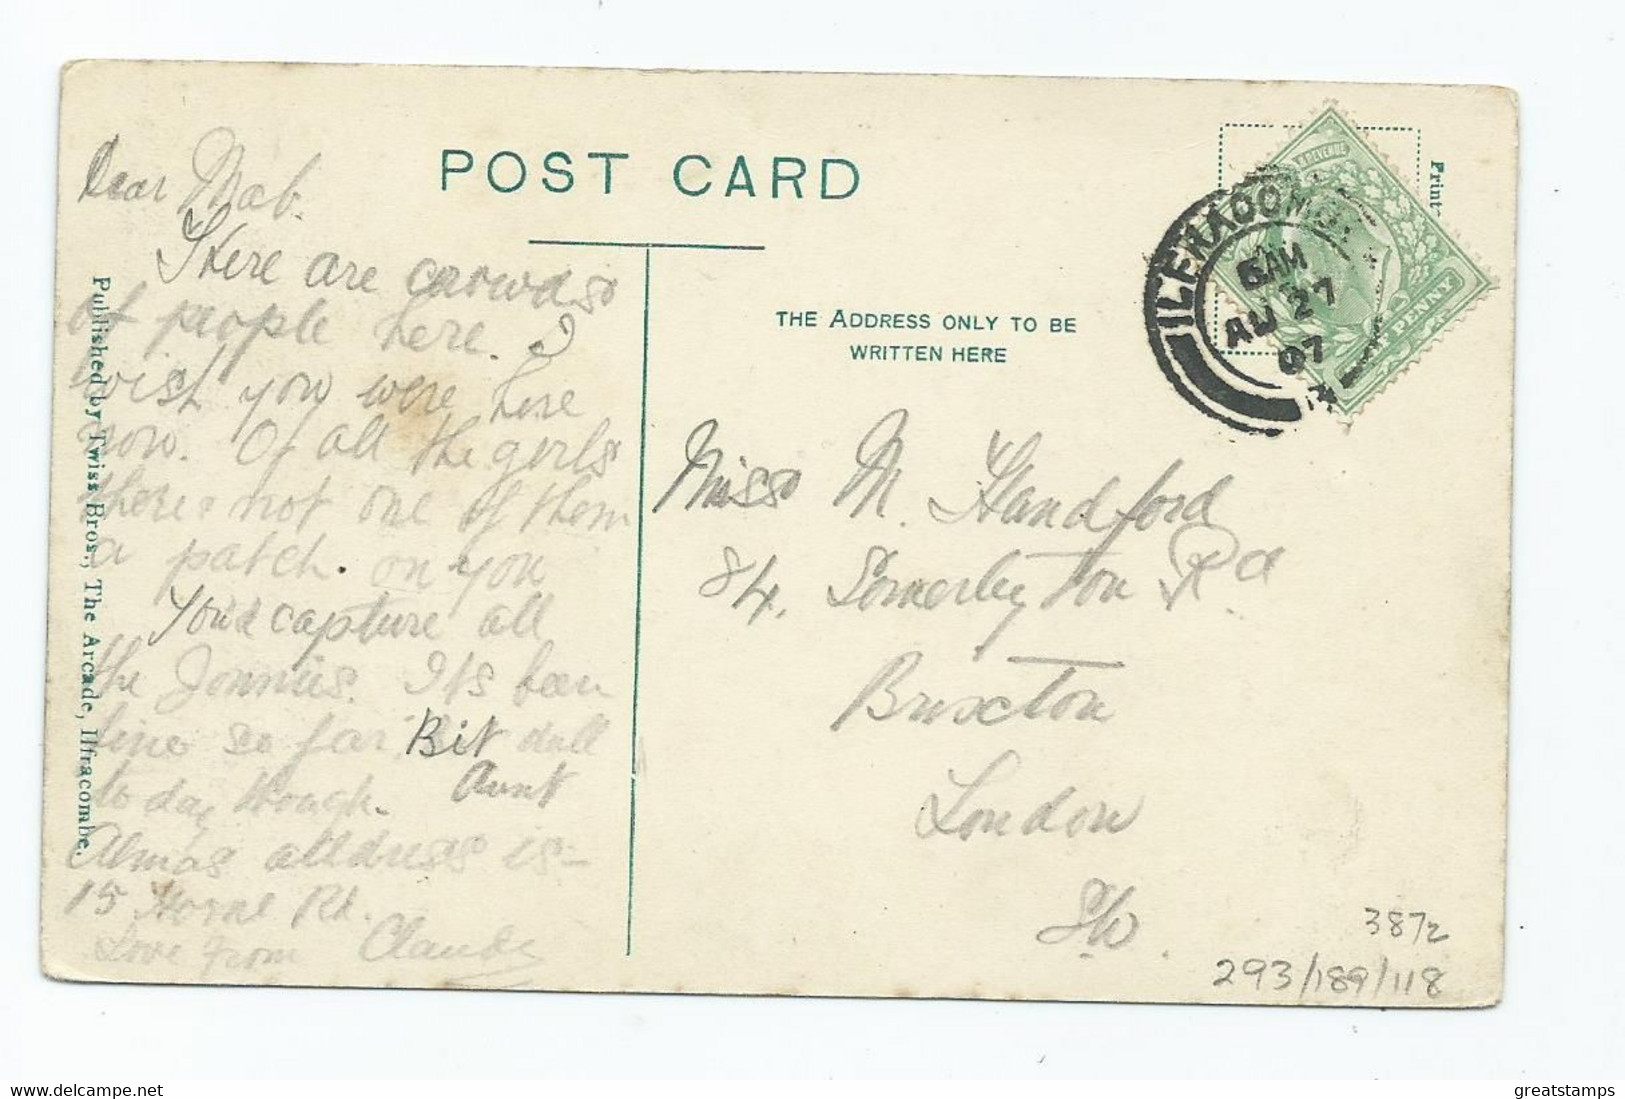 POST CARD
THE ADDRESS ONLY TO BE
WRITTEN HERE
Published by Twiss Bros., The Arcade, Ilfracombe.
Dear Mab.
There are crowds
of people here. I
wish you were here
now. Of all the girls
there's not one of them
a patch. on you
You'd capture all
the Jonnies. Its been
fine so far Bit dull
to day though. Aunt
Almas address is-
15 Horne Rd.
Love from Claude
Miss M. Handford
84. Somerleyton Rd
Brixton
London
S.W.
ILFRACOMBE
6 AM
AU 27
07
REVENUE
PENNY
Print
3872
293/189/118
greatstamps